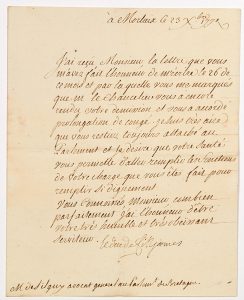 à Morlaix le 23 Xbre
J'ai reçu Monsieur la lettre que vous
m'avez fait l'honneur de m'écrire le 26 de
ce mois et par laquelle vous me marquez
que M. le Chancelier vous a encore
rendu votre et vous a accordé
prolongation de congé. je suis très aise
que vous restiez toujours attaché au
Parlement et je desire que votre santé
vous permette d'aller remplir les fonctions
de votre charge que vous êtes fait pour
remplir si dignement.
Vous connoissés Monsieur combien
parfaitement j'ai l'honneur d'être
votre très humble et très obeissant
serviteur.
Le duc de
M. de avocat general au Parlemt. de Bretagne